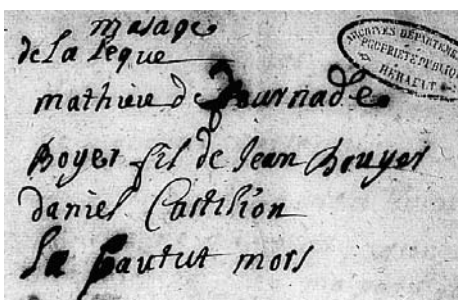 masage
de la leque
mathieu de Journade
Boyer fil de Jean Bouyer
daniel Castilion
la mort
ARCHIVES DÉPARTEM
PROPRIÉTÉ PUBLIQUE
HÉRAULT